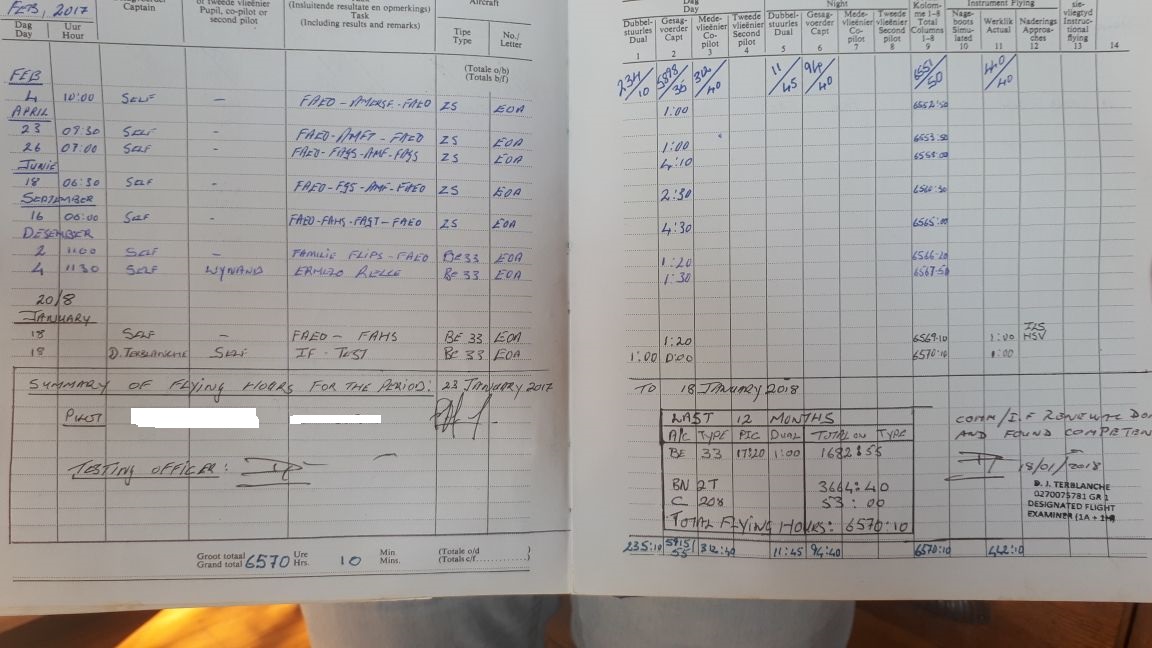 FEB, 2017
Captain
of tweede vlieënier
Pupil, co-pilot or
second pilot
(Insluitende resultate en opmerkings)
Task
(Including results and remarks)
Aircraft
Dag
Day
Uur
Hour
Tipe
Type
No./
Letter
(Totale o/b)
(Totals b/f)
FEB
4 10:00 SELF - ZS EOA
APRIL
23 07:30 SELF - ZS EOA
26 07:00 SELF - ZS EOA
JUNIE
18 06:30 SELF - ZS EOA
SEPTEMBER
16 06:00 SELF - FAEO-FAHS-FAST-FAEO ZS EOA
DESEMBER
2 11:00 SELF - FAMILIE FLIPS-FAEO Be 33 EOA
4 11:30 SELF WYNAND ERMELO Be 33 EOA
2018
JANUARY
18 SELF - FAEO - FAHS BE 33 EOA
18 D. TERBLANCHE SELF IF. TEST BE 33 EOA
SUMMARY OF FLYING HOURS FOR THE PERIOD: 23 JANUARY 2017
PILOT
TESTING OFFICER:
Groot totaal
Grand total
6570
Ure
Hrs.
10
Min.
Mins.
(Totale o/d
(Totals c/f
Dag
Day
Night
Instrument Flying
Dubbel-
stuurles
Dual
Gesag-
voerder
Capt
Mede-
vlieënier
Co-
pilot
Tweede
vlieënier
Second
pilot
Dubbel-
stuurles
Dual
Gesag-
voerder
Capt
Mede-
vlieënier
Co-
pilot
Tweede
vlieënier
Second
pilot
Kolom-
me 1-8
Total
Columns
1-8
Nage-
boots
Simu-
lated
Werklik
Actual
Naderings
Approa-
ches
sie-
vliegtyd
Instruc-
tional
flying
1 2 3 4 5 6 7 8 9 10 11 12 13 14
234/10 312/40 11/45 94/40 6551/50 440/40
1:00 6552:50
1:00 6553:50
4:10 6558:00
2:30 6560:30
4:30 6565:00
1:20 6566:20
1:30 6567:50
1:20 6569:10 1:00 ILS
HSV
1:00 0:00 6570:10 1:00
TO 18 JANUARY 2018
LAST 12 MONTHS
A/C TYPE PIC DUAL TOTAL ON TYPE
BE 33 17:20 1:00 1682:55
BN 2T 3664:40
C 208 53:00
TOTAL FLYING HOURS: 6570:10
COMM/I.F RENEWAL
AND FOUND COMPETEN
18/01/2018
D. J. TERBLANCHE
0270075781 GR 1
DESIGNATED FLIGHT
EXAMINER (1A +
235:10 5915/55 312:40 11:45 94:40 6570:10 442:10